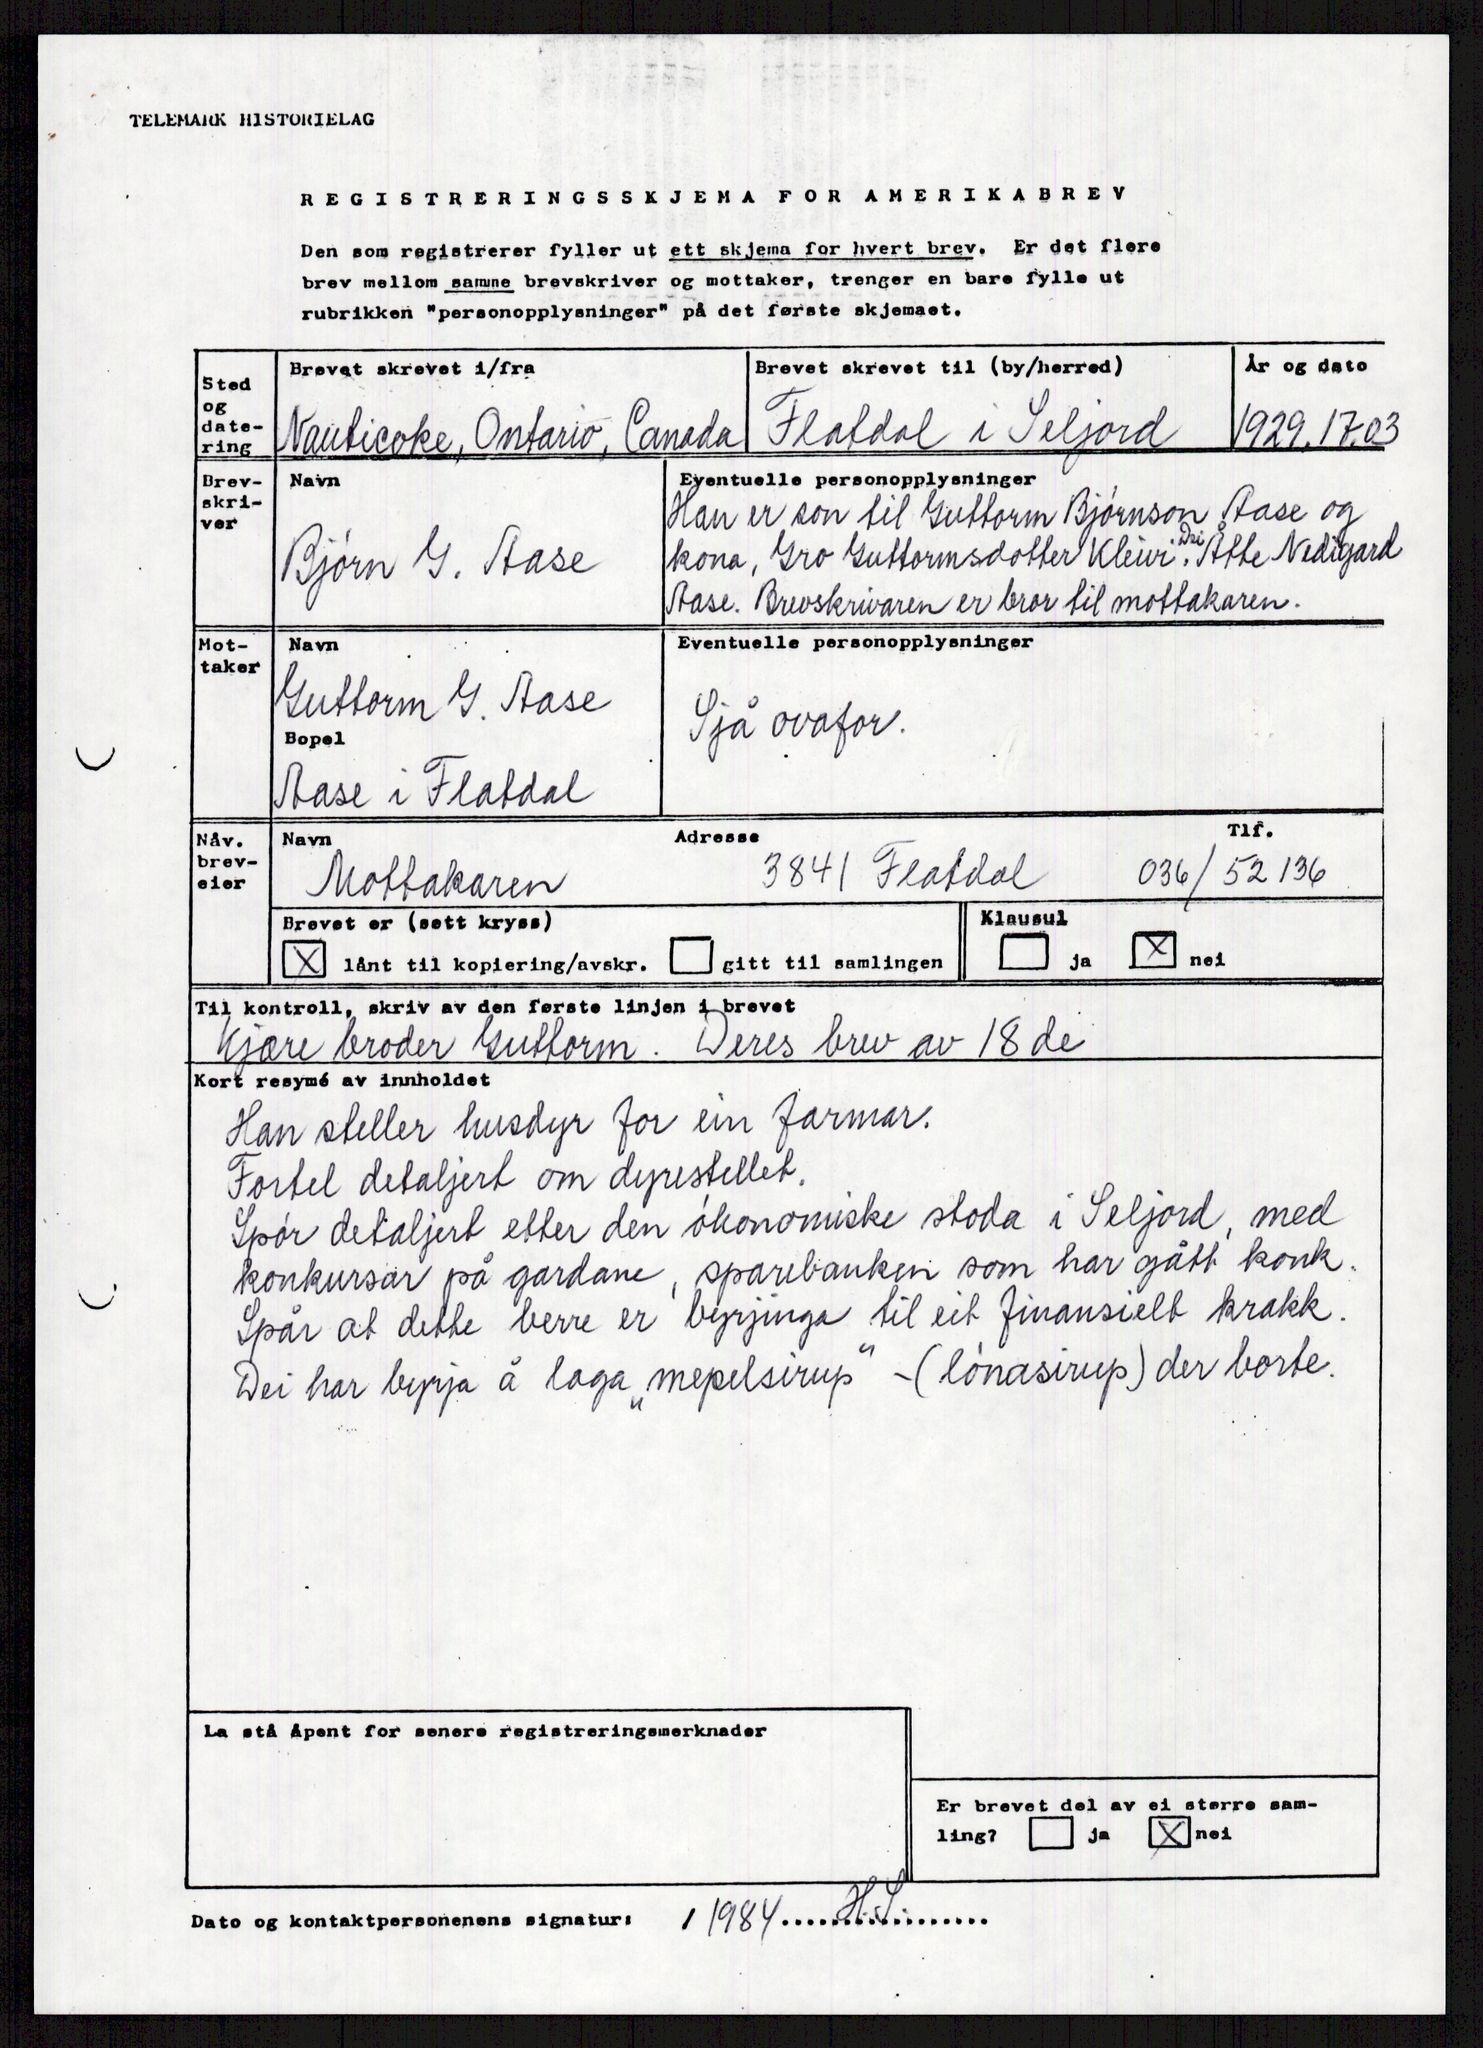 TELEMARK HISTORIELAG
REGISTRERINGSSKJEMA FOR AMERIKABREV
Den som registrerer fyller ut ett skjema for hvert brev. Er det flere
brev mellom samme brevskriver og mottaker, trenger en bare fylle ut
rubrikken "personopplysninger" på det første skjemaet.
Sted
og
date-
ring
Brevet skrevet i/fra
Nauticoke, Ontario, Canada
Brevet skrevet til (by/herred)
Flatdal i Seljord
År og dato
1929, 17.03
Brev-
skri-
ver
Navn
Bjørn G. Aase
Eventuelle personopplysninger
Han er son til Guttorm Bjørnson Aase og
kona, Gro Guttormsdotter Kleivi. Dei Åtte Nedigard
Aase. Brevskrivaren er bror til mottakaren.
Mot-
taker
Navn
Guttorm G. Aase
Bopel
Aase i Flatdal
Eventuelle personopplysninger
Sjå ovafor.
Nåv.
brev-
eier
Navn
Mottakaren
Adresse
3841 Flatdal
Tlf.
036/52136
Brevet er (sett kryss)
X lånt til kopiering/avskr.
gitt til samlingen
Klausul
ja
X nei
Til kontroll, skriv av den første linjen i brevet
Kjære broder Guttorm. Deres brev av 18 de
Kort resymé av innholdet
Han steller husdyr for ein farmar.
Fortel detaljert om dyrestellet.
Spør detaljert etter den økonomiske stoda i Seljord, med
konkursar på gardane, sparebanken som har gått konk.
Spår at dette berre er byrjinga til eit finansielt krakk.
Dei har byrja å laga „mepelsirup" - (lønasirup) der borte.
La stå åpent for senere registreringsmerknader
Er brevet del av ei større sam-
ling? ja X nei
Dato og kontaktpersonenens signatur: / 1984 ...... H.S. ......